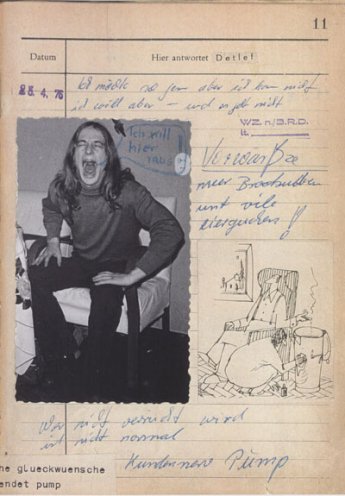 11
Datum
Hier antwortet Detlef
25. 4. 76
Ich möchte so gern aber ich kann nicht
ich will aber — und es geht nicht
Ich will
hier
raus
WZ n/B.R.D.
lt.
meer
unt vile
Wer nicht verrückt wird
ist nicht normal
Pump
he glueckwuensche
endet pump